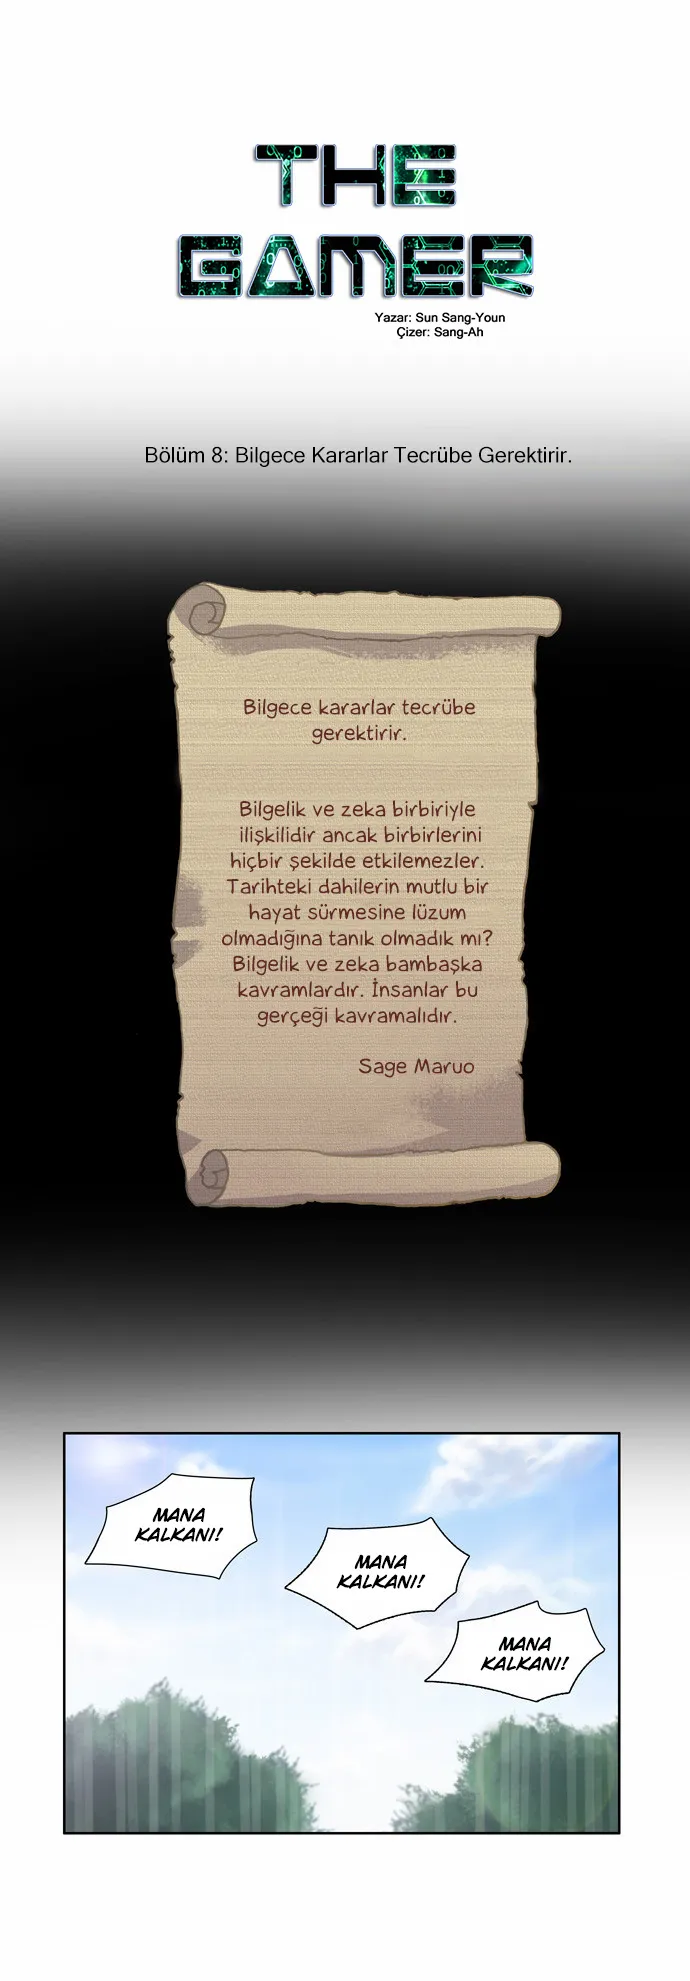 THE
GAMER
Yazar: Sun Sang-Youn
Çizer: Sang-Ah
Bölüm 8: Bilgece Kararlar Tecrübe Gerektirir.
Bilgece kararlar tecrübe
gerektirir.
Bilgelik ve zeka birbiriyle
ilişkilidir ancak birbirlerini
hiçbir şekilde etkilemezler.
Tarihteki dahilerin mutlu bir
hayat sürmesine lüzum
olmadığına tanık olmadık mı?
Bilgelik ve zeka bambaşka
kavramlardır. İnsanlar bu
gerçeği kavramalıdır.
Sage Maruo
MANA
KALKANI!
MANA
KALKANI!
MANA
KALKANI!